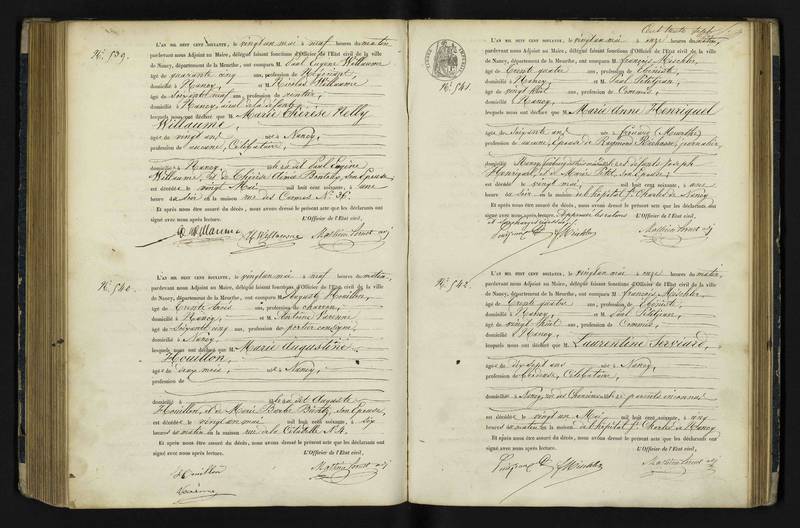 N.° 539.
L'AN MIL HUIT CENT SOIXANTE, le vingt un mai à neuf heures du matin,
pardevant nous Adjoint au Maire, délégué faisant fonctions d'Officier de l'Etat civil de la ville
de Nancy, département de la Meurthe, ont comparu M. Paul Eugène Willaume
âgé de quarante cinq ans, profession de
domicilié à Nancy, et M. Nicolas Willaume
âgé de soixante neuf ans, profession de rentier,
domicilié à Nancy, aïeul de la défunte,
lesquels nous ont déclaré que M. Marie Thérèse Nelly
Willaume,
âgée de vingt ans, née à Nancy,
profession de aucune, Célibataire,
domiciliée à Nancy, fille de Paul Eugène
Willaume, et de Thérèse son Epouse
est décédée le vingt Mai mil huit cent soixante, à une
heure du soir en la maison rue des Carmes N.° 36.
Et après nous être assuré du décès, nous avons dressé le présent acte que les déclarants ont
signé avec nous après lecture. L'Officier de l'Etat civil,
Willaume Willaume
N.° 540.
L'AN MIL HUIT CENT SOIXANTE, le vingt un mai à neuf heures du matin,
pardevant nous Adjoint au Maire, délégué faisant fonctions d'Officier de l'Etat civil de la ville
de Nancy, département de la Meurthe, ont comparu M. Auguste Houillon,
âgé de trente trois ans, profession de charron,
domicilié à Nancy, et M. Antoine Varenne
âgé de soixante cinq ans, profession de portier consigne,
domicilié à Nancy,
lesquels nous ont déclaré que M. Marie Augustine
Houillon,
âgée de deux mois, née à Nancy,
profession de
domicilié à fille de Auguste
Houillon, et de Marie Barbe son Epouse
est décédée le vingt un mai mil huit cent soixante, à six
heures du matin en la maison rue de la Citadelle N.° 4.
Et après nous être assuré du décès, nous avons dressé le présent acte que les déclarants ont
signé avec nous après lecture. L'Officier de l'Etat civil,
Houillon
Varenne
Cent trente sept
N.° 541.
L'AN MIL HUIT CENT SOIXANTE, le vingt un mai à onze heures du matin,
pardevant nous Adjoint au Maire, délégué faisant fonctions d'Officier de l'Etat civil de la ville
de Nancy, département de la Meurthe, ont comparu M. François
âgé de trente quatre ans, profession de Ebéniste
domicilié à Nancy, et M. Paul Petitjean,
âgé de vingt huit ans, profession de Commis,
domicilié à Nancy,
lesquels nous ont déclaré que M. Marie Anne Henriquel
âgée de soixante ans, née à (Meurthe)
profession de aucune, épouse de Raymond journalier,
domiciliée à Nancy, fille de défunts Joseph
Henriquel, et de Marie Petit, son Epouse,
est décédée le vingt mai, mil huit cent soixante, à une
heure du soir en la maison de l'hôpital St Charles de Nancy
Et après nous être assuré du décès, nous avons dressé le présent acte que les déclarants ont
signé avec nous après lecture. L'Officier de l'Etat civil,
N.° 542.
L'AN MIL HUIT CENT SOIXANTE, le vingt un mai à onze heures du matin,
pardevant nous Adjoint au Maire, délégué faisant fonctions d'Officier de l'Etat civil de la ville
de Nancy, département de la Meurthe, ont comparu M. François
âgé de trente quatre ans, profession de Ebéniste
domicilié à Nancy, et M. Paul Petitjean,
âgé de vingt huit ans, profession de Commis,
domicilié à Nancy,
lesquels nous ont déclaré que M. Laurentine Serviard,
âgée de dix sept ans née à Nancy,
profession de Célibataire,
domiciliée à Nancy, parents inconnus
est décédée le vingt un Mai mil huit cent soixante, à
heures du matin en la maison de l'hôpital St Charles de Nancy
Et après nous être assuré du décès, nous avons dressé le présent acte que les déclarants ont
signé avec nous après lecture. L'Officier de l'Etat civil,